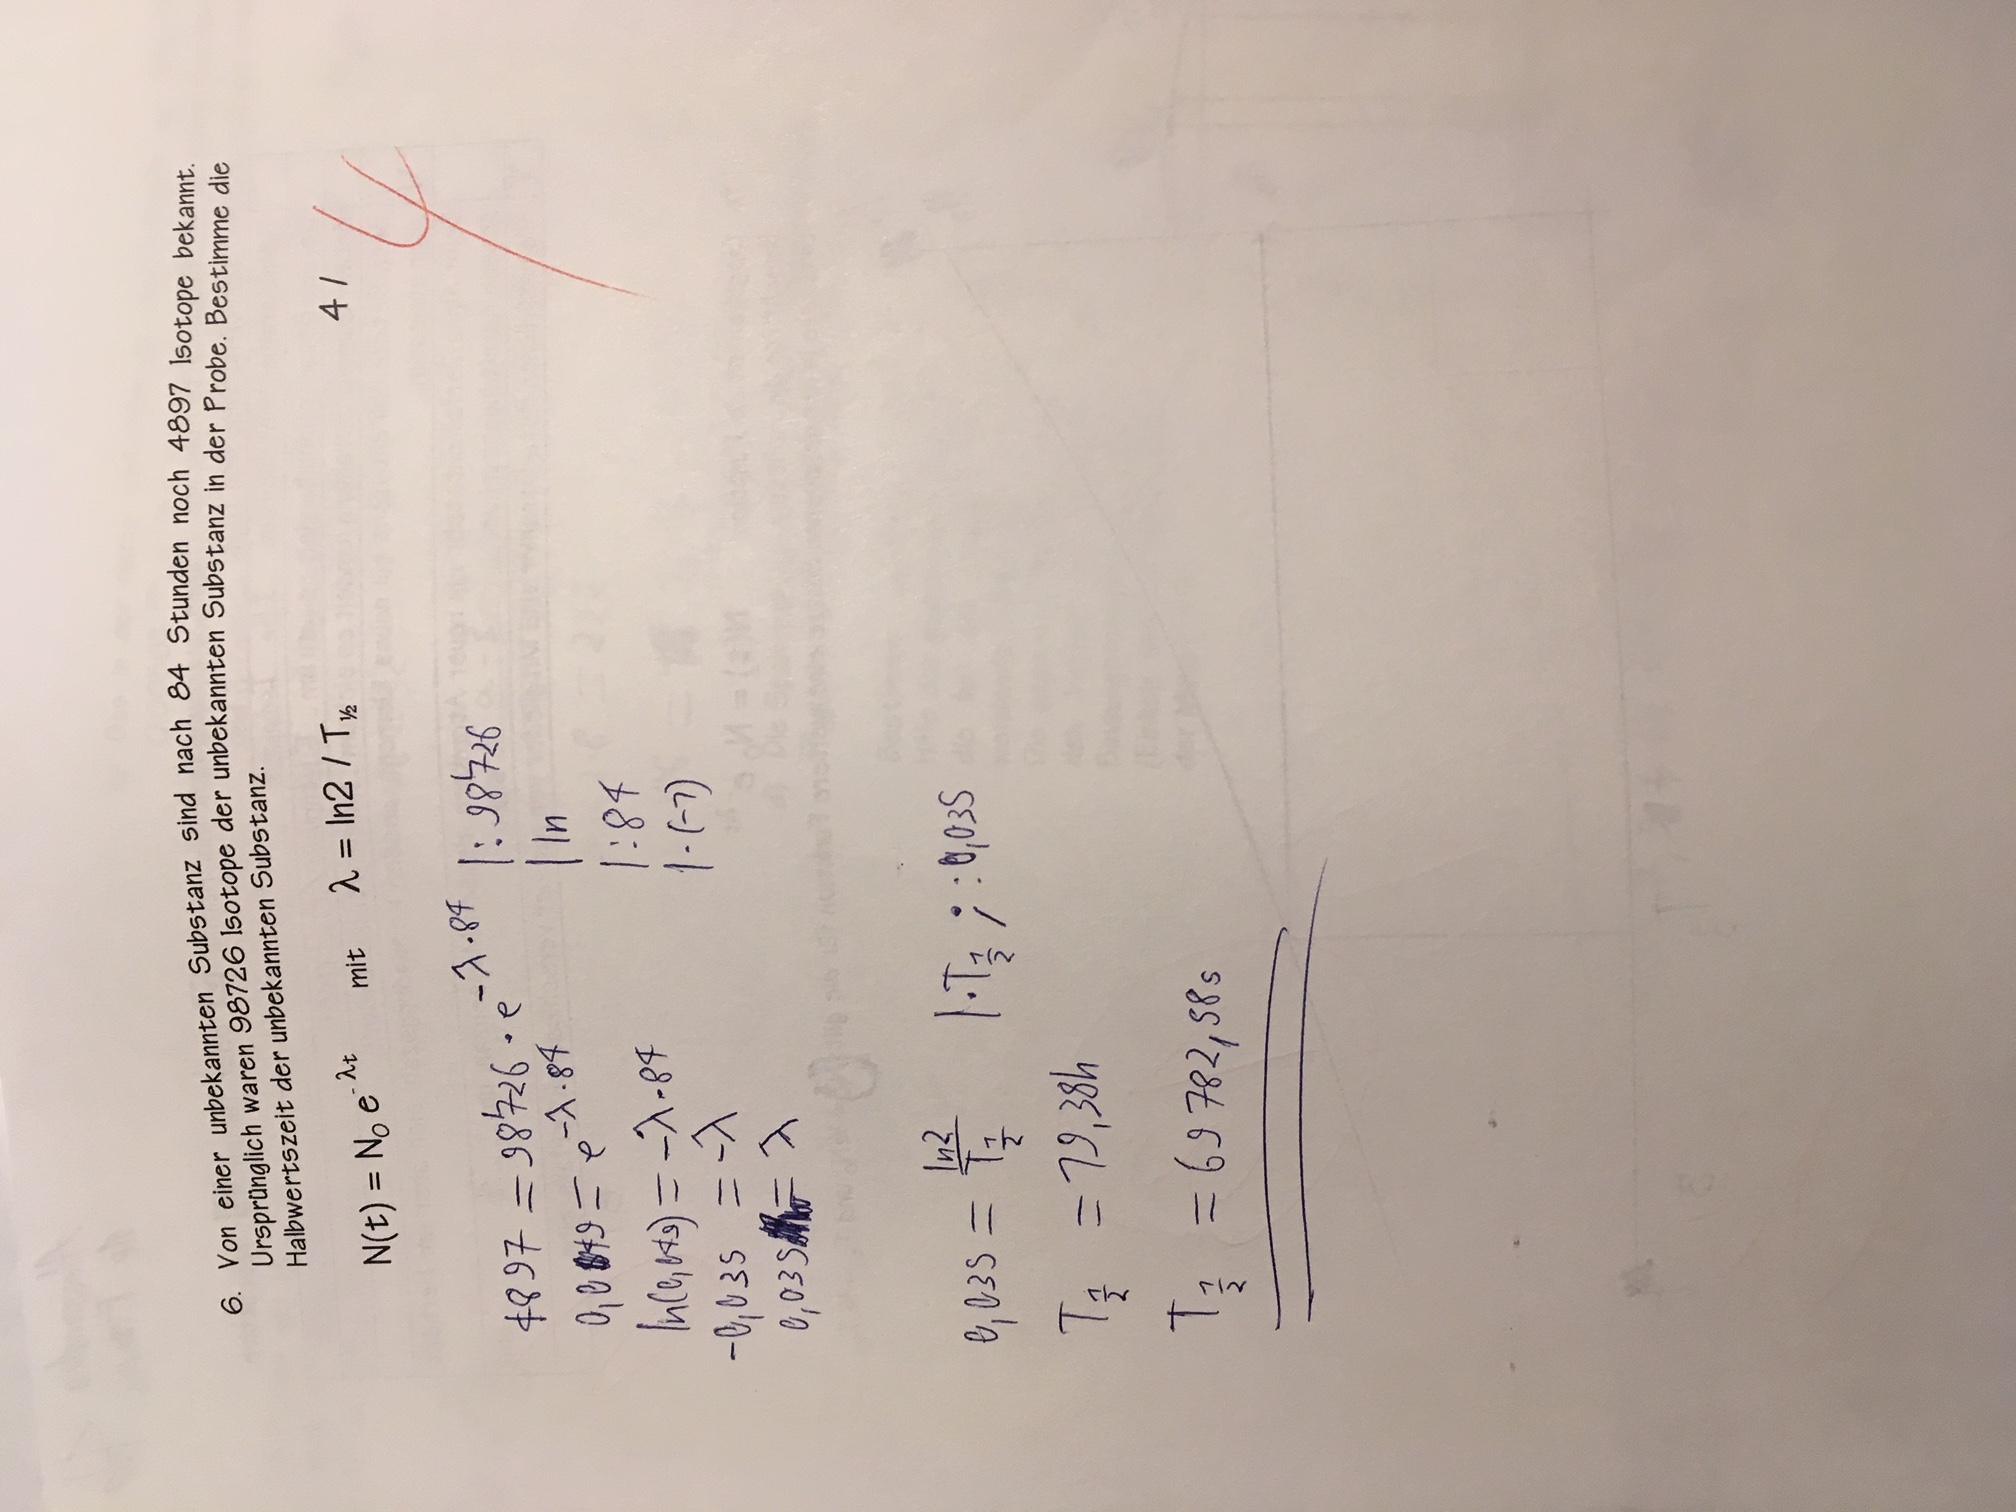 6. Von einer unbekannten Substanz sind nach 84 Stunden noch 4897 Isotope bekannt.
Ursprünglich waren 98726 Isotope der unbekannten Substanz in der Probe. Bestimme die
Halbwertszeit der unbekannten Substanz.
N(t) = N₀ e^-λt mit λ = ln2 / T½
4 / 4
4897 = 98726 · e^-λ·84 |: 98726
0,049 = e^-λ·84 | ln
ln(0,049) = -λ·84 |: 84
-0,035 = -λ |·(-1)
0,035 = λ
0,035 = ln2/T½ |·T½ ; :0,035
T½ = 19,38h
T½ = 69782,58s